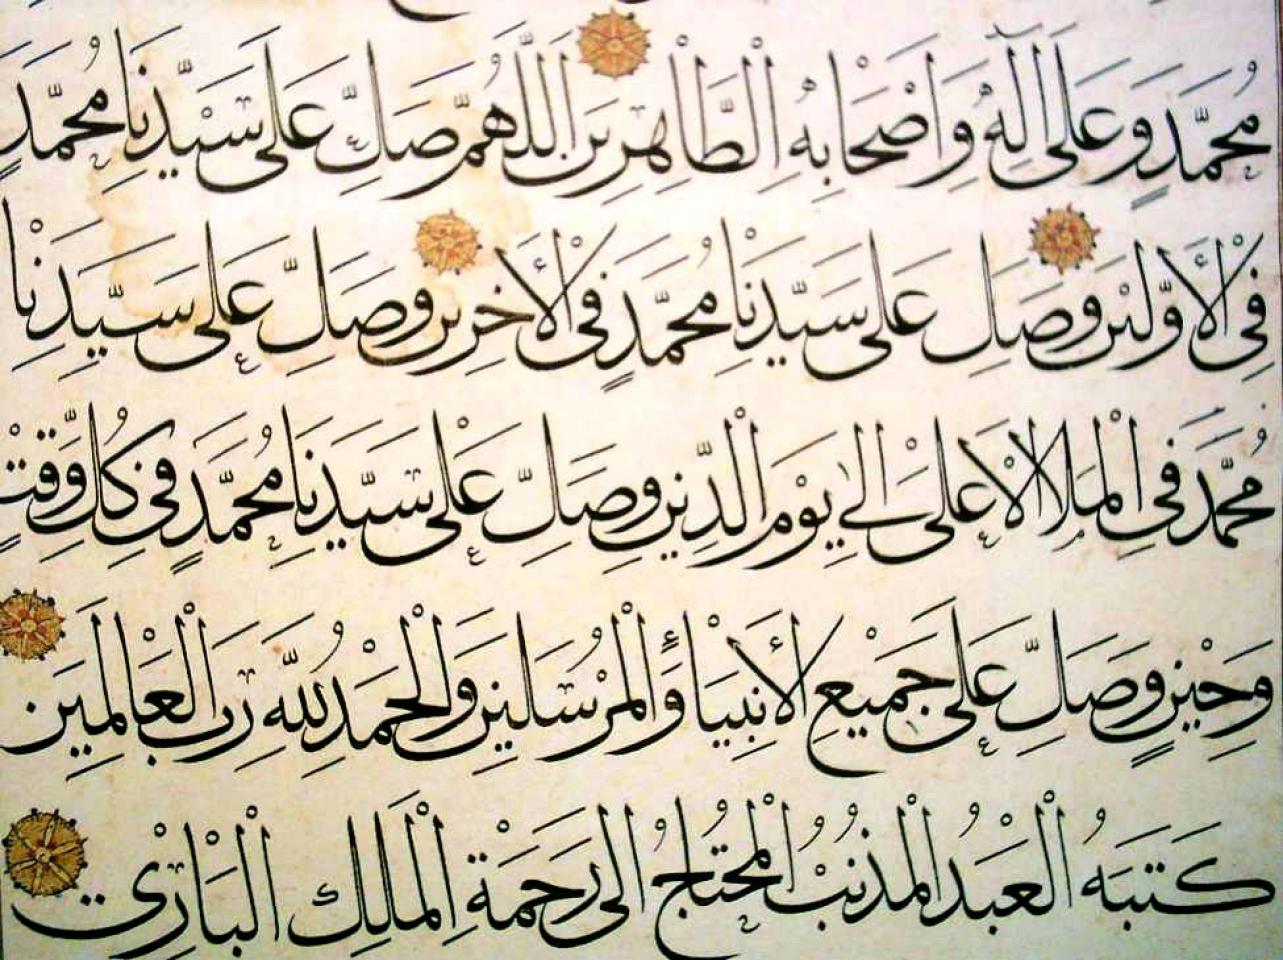 مُحَمَّدٍ وَعَلَى اٰلِهِ وَاَصْحَابِهِ الطَّاهِرِينَ اَللّٰهُمَّ صَلِّ عَلَى سَيِّدِنَا مُحَمَّدٍ
فِي الْأَوَّلِينَ وَصَلِّ عَلَى سَيِّدِنَا مُحَمَّدٍ فِي الْأَخِرِينَ وَصَلِّ عَلَى سَيِّدِنَا
مُحَمَّدٍ فِي الْمَلَاِ الْاَعْلَى اِلَى يَوْمِ الدِّينِ وَصَلِّ عَلَى سَيِّدِنَا مُحَمَّدٍ فِي كُلِّ وَقْتٍ
وَحِينٍ وَصَلِّ عَلَى جَمِيعِ الْأَنْبِيَاءِ وَالْمُرْسَلِينَ وَالْحَمْدُ لِلّٰهِ رَبِّ الْعَالَمِينَ
كَتَبَهُ الْعَبْدُ الْمُذْنِبُ الْمُحْتَاجُ اِلَى رَحْمَةِ الْمَلِكِ الْبَارِي